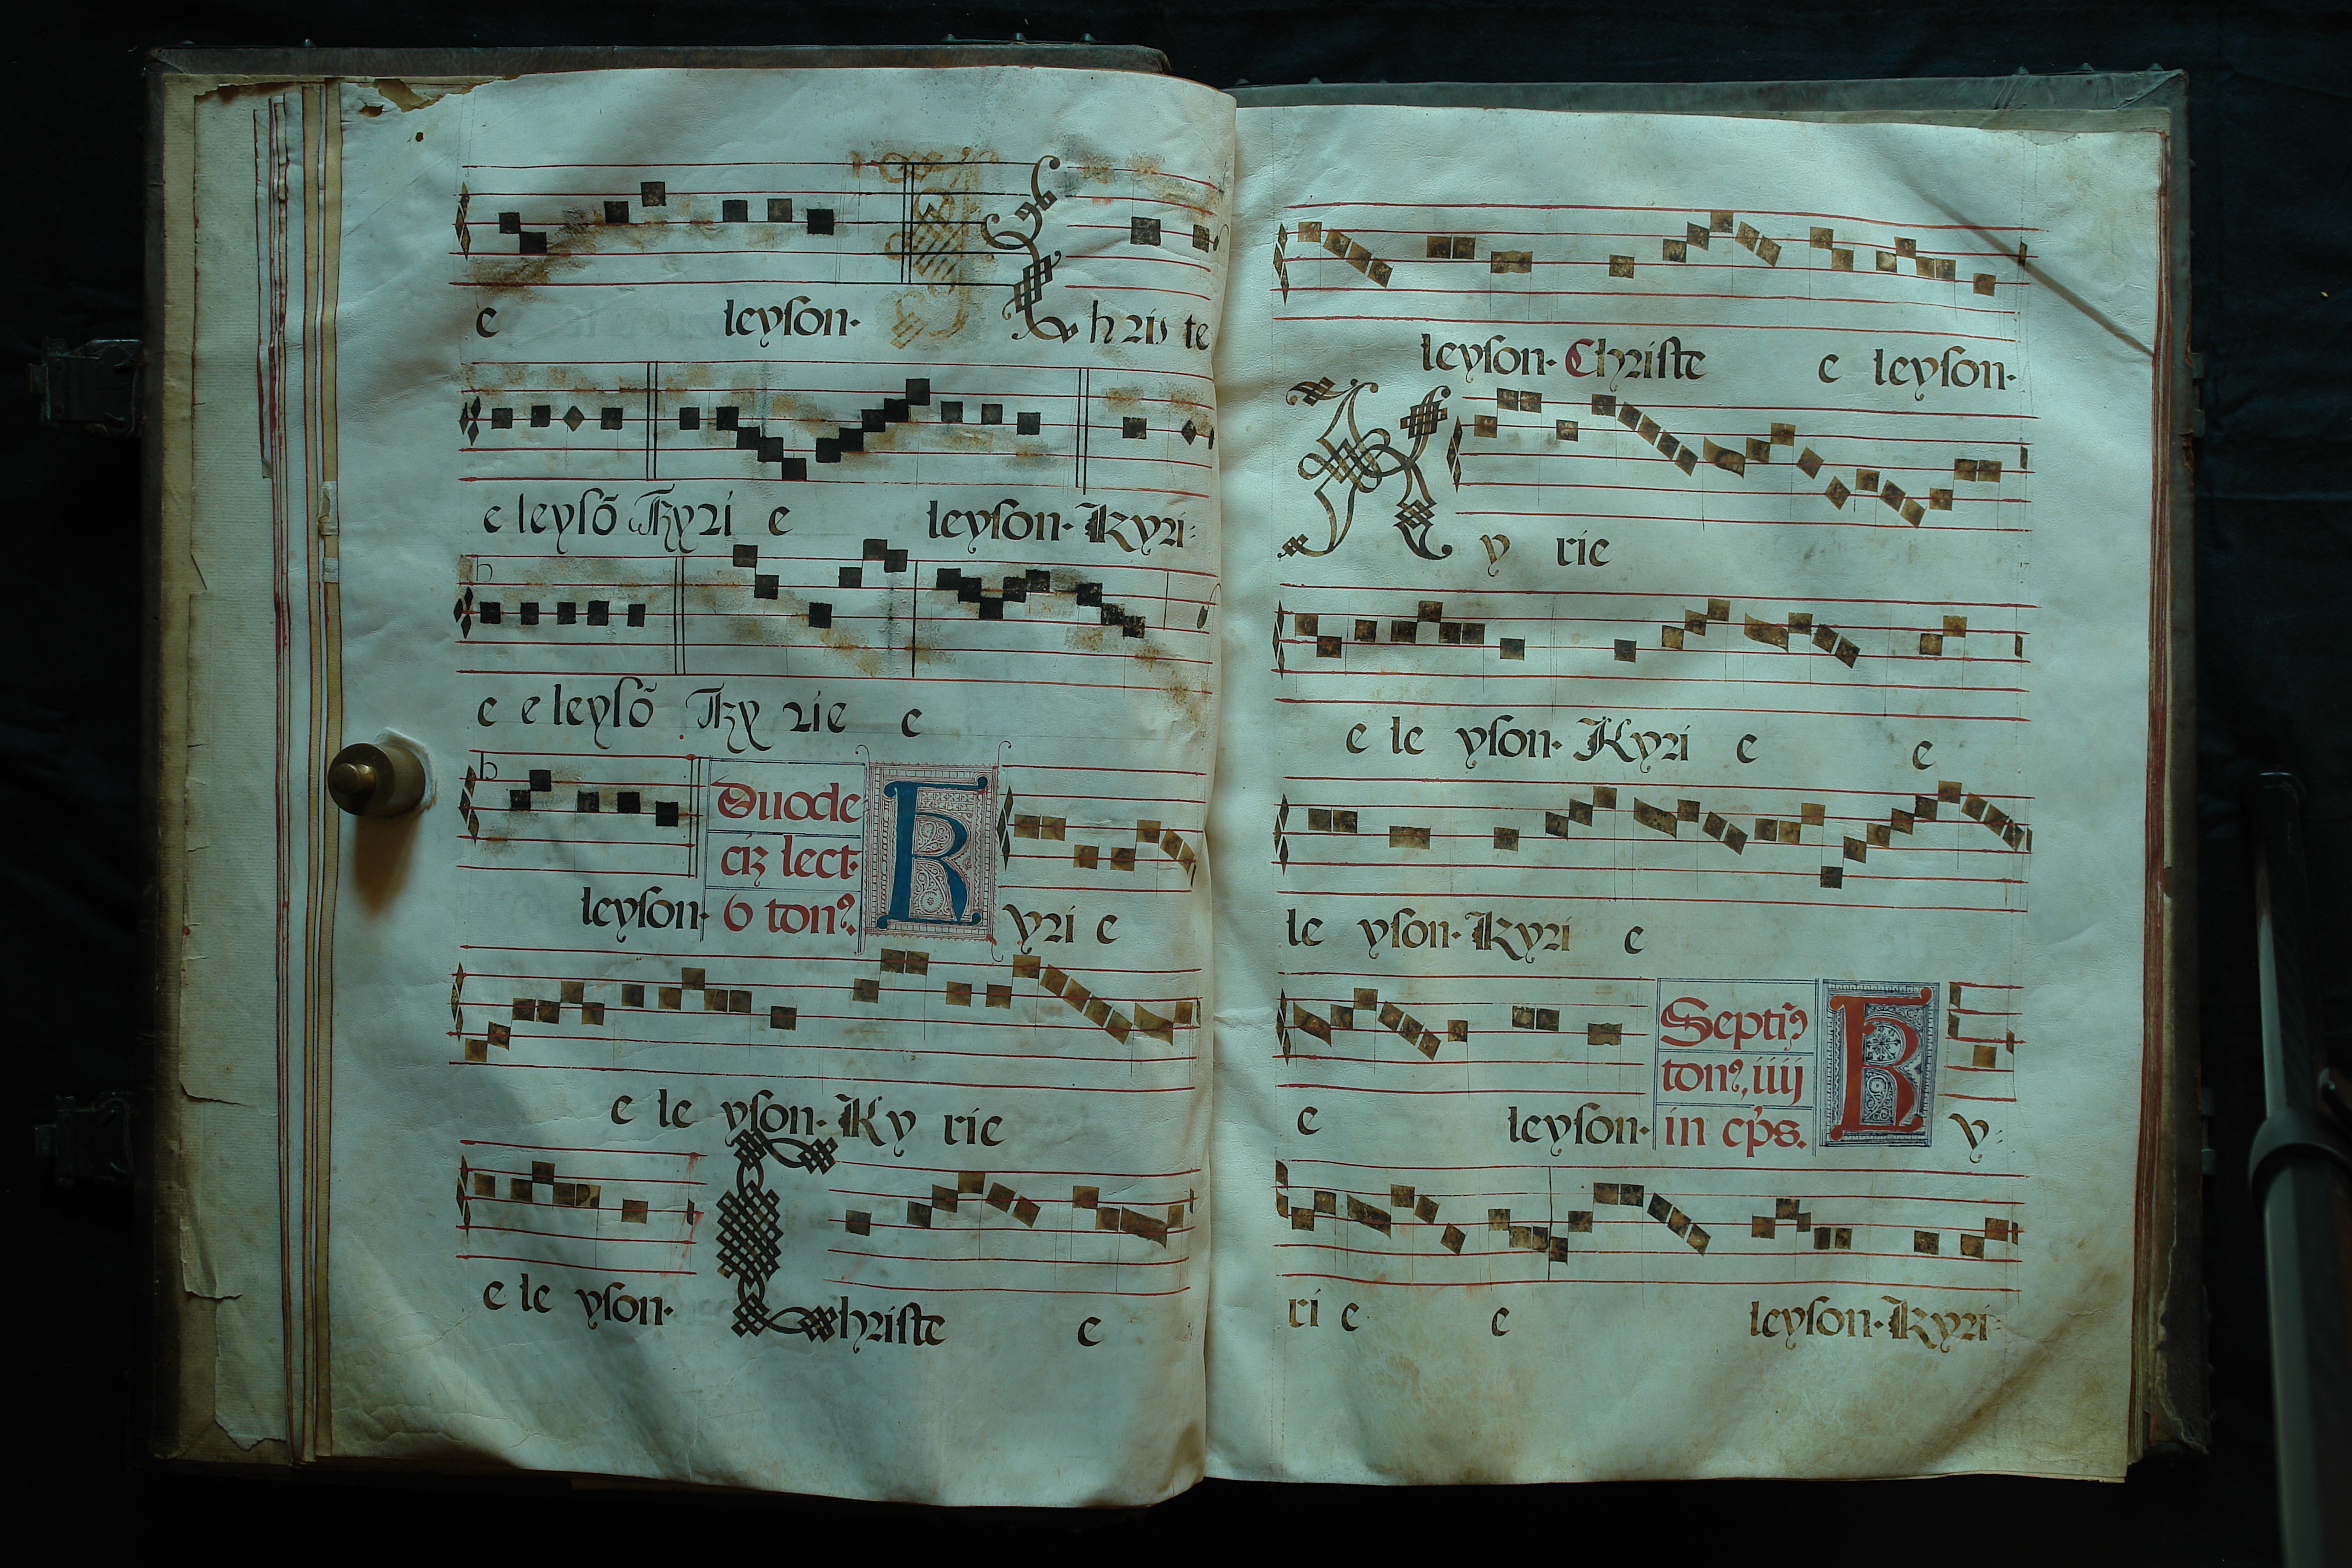 e leyson. Christe
e leysõ Kyri e leyson. Kyri
e e leysõ Kyrie e
Duode
ciz lect.
leyson. 6 ton9. Kyri e
e le yson. Ky rie
e le yson. Christe e
leyson. Christe e leyson.
Ky rie
e le yson. Kyri e e
le yson. Kyri e
Septi9
ton9, iiij
e leyson. in eps. Ky
ri e e leyson. Kyri